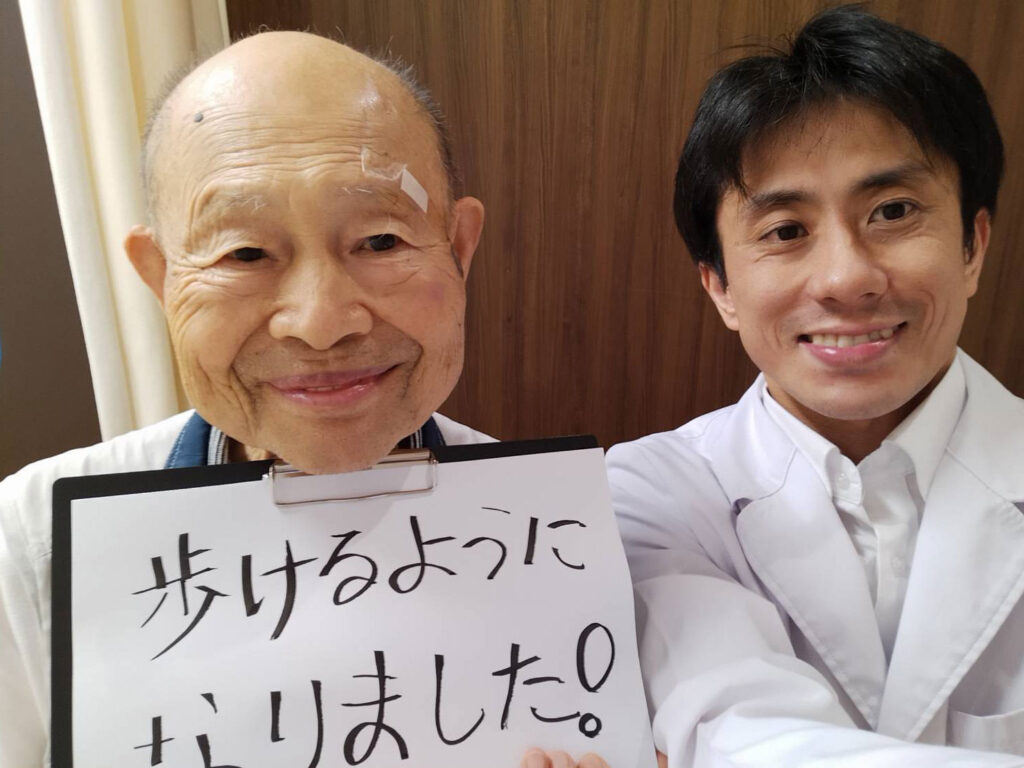 歩けるように
なりました!